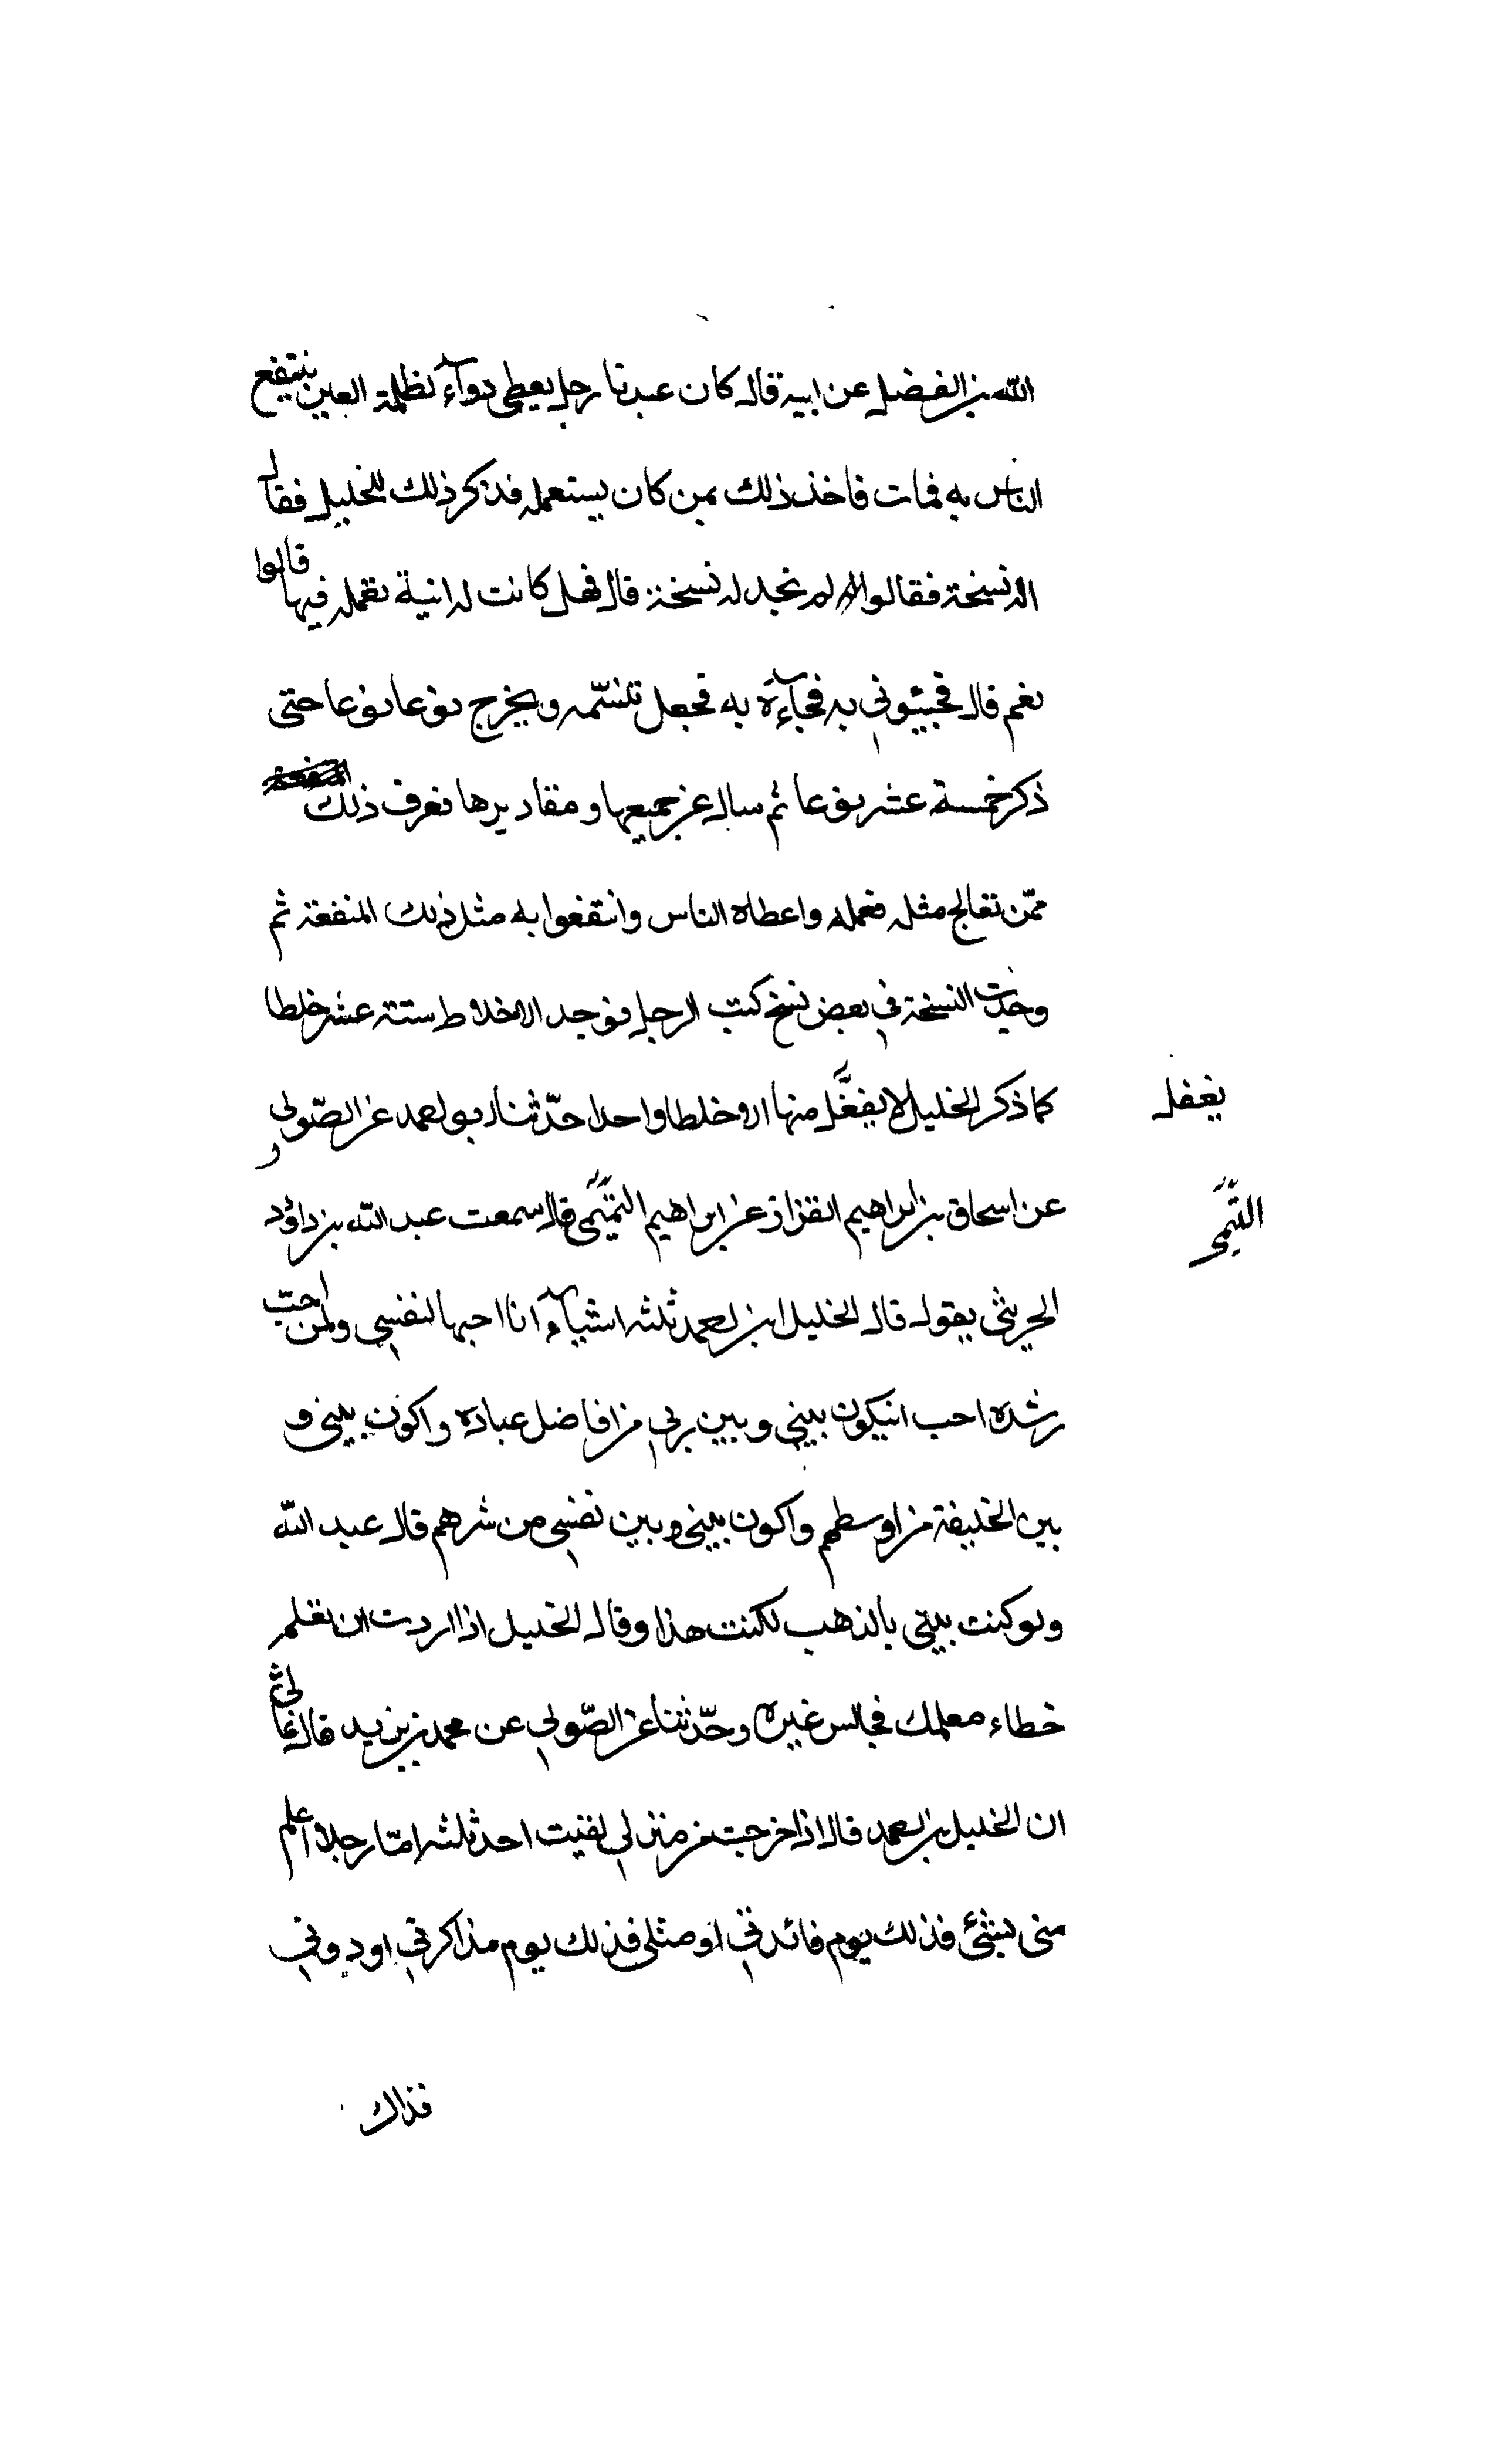 الله بن الفضل عن ابيه قال كان عندنا رجل يعطى دوآء لظلمة العين ينتفع
الناس به فمات فاخذ ذلك بمن كان يستعمله فذكر ذلك للخليل فقال
اله نسخة فقالوا لم نجد له نسخة قال فهل كانت له انية يعمله فيها قالوا
نعم قال فجيئوني به فجآءه به فجعل يتنسّمه ويخرج نوعا نوعا حتى
ذكر خمسة عشر نوعا ثم سال عن جميعها ومقاديرها فعرف ذلك
ممّن تعالج مثله فعمله واعطاه الناس وانتفعوا به مثل ذلك المنفعة ثم
وجدت النسخة في بعض نسخ كتب الرجل فوجد الاخلاط ستة عشر خلطا
كما ذكر الخليل لا يفغّل منها الا خلطا واحدا حدّثنا ابو احمد عن الصّولي
يغفل
عن اسحاق بن ابراهيم القزاز عن ابراهيم التيمّى قال سمعت عبد الله بن داؤد
التّيمى
الحريثى يقول قال الخليل ابن احمد ثلثه اشيآء انا احبها لنفسي ولمن احبّ
رشده احب انيكون بيني وبين ربي من افاضل عباده واكون بيني و
بين الخليفة من اوسطهم واكون بيني وبين نفسي من شرهم قال عبد الله
ولو كنت بيتي بالذهب لكنت هذا وقال الخليل اذا اردت ان تعلم
خطاء معلمك فجالس غيره وحدّثنا عن الصّولي عن محمد بن يزيد قال
ان الخليل بن احمد قال اذا خرجت من منزلي لقيت احد ثلثه امّا رجلا اعلم
منى بشئ فذلك يوم فائدتي او مثلى فذلك يوم مذاكرتي او دوني
فذاك